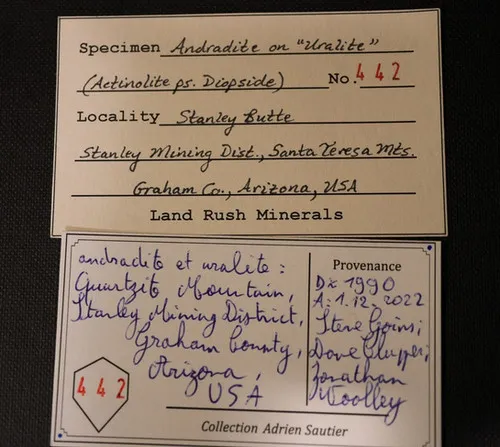 Specimen Andradite on "Uralite"
(Actinolite ps. Diopside) No. 442
Locality Stanley Butte
Stanley Mining Dist., Santa Teresa Mts.
Graham Co., Arizona, USA
Land Rush Minerals
andradite et uralite :
Quartzite Mountain,
Stanley Mining District,
Graham County,
Arizona,
USA
442
Provenance
D: 1990
A: 1.12.2022
Steve Goins;
Dave
Jonathan
Woolley
Collection Adrien Sautier